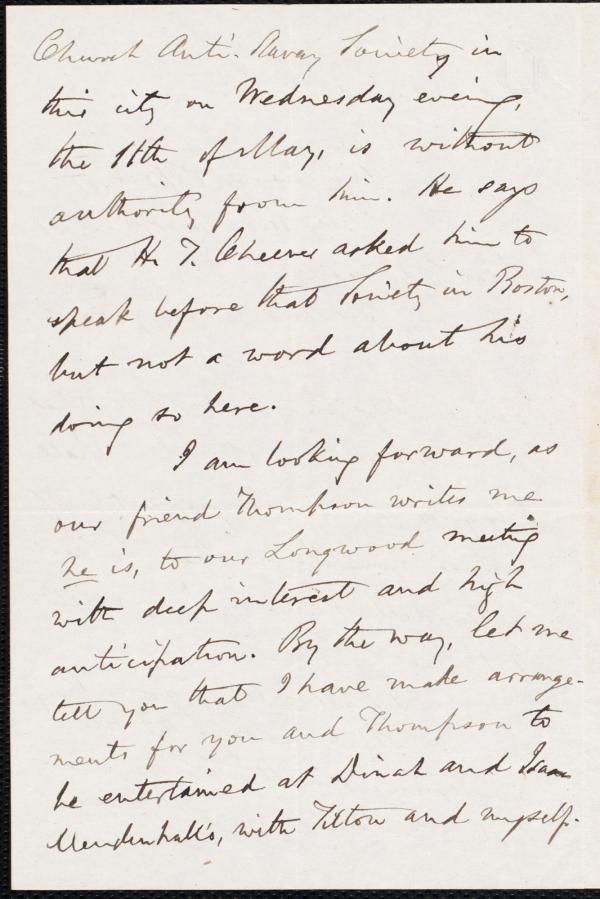 Church Anti-Slavery Society in
this city on Wednesday evening,
the 11th of May, is without
authority from him. He says
that H. T. Cheever asked him to
speak before that Society in Boston,
but not a word about his
doing so here.
I am looking forward, as
our friend Thompson writes me
he is, to our Longwood meeting
with deep interest and high
anticipation. By the way, let me
tell you that I have make arrange-
ments for you and Thompson to
be entertained at Dinah and Isaac
Mendenhall's, with Tilton and myself.